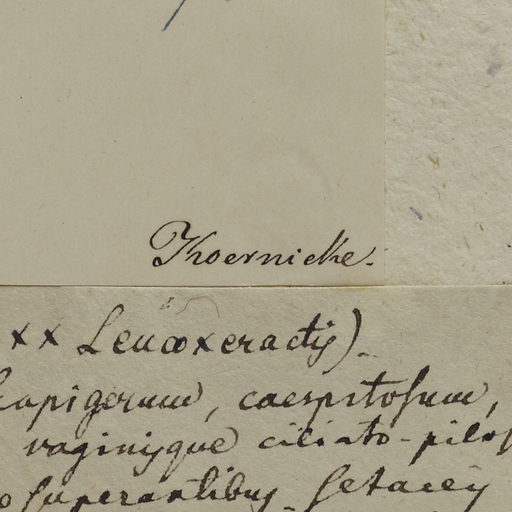 Koernicke.
xx Leucoxeractis)
scapigerum, caespitosum,
vaginisque ciliato-pilos
superantibus setaceis